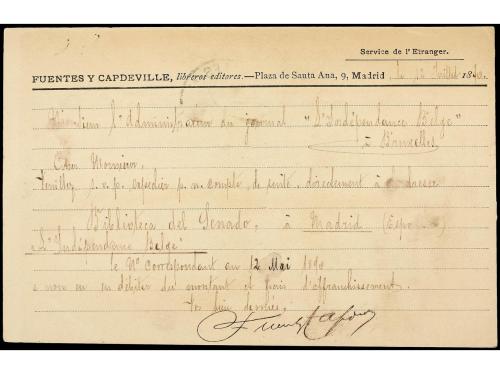 Service de l'Etranger.
FUENTES Y CAPDEVILLE, libreros editores.—Plaza de Santa Ana, 9, Madrid, le 12 Juillet 18
Monsieur l'Administrateur du journal "L'Indépendance Belge"
à Bruxelles
Cher Monsieur,
Veuillez s.v.p. expédier p. n. compte, de suite, directement à
Biblioteca del Senado, à Madrid (Espa
"L'Indépendance Belge"
le Nº correspondant au 12 Mai 18
nous en débiter du montant et frais d'affranchissement.